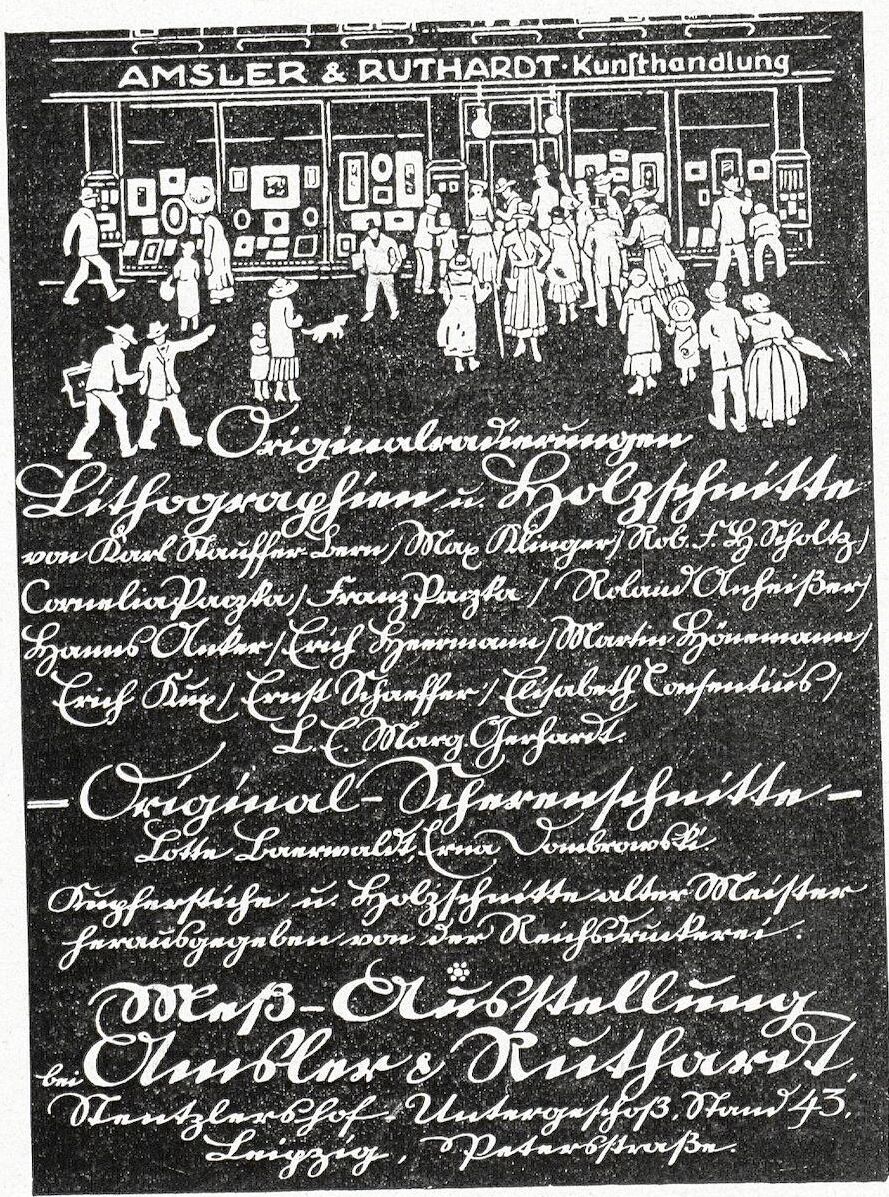 AMSLER & RUTHARDT · Kunsthandlung
Originalradierungen
Lithographien u. Holzschnitte
von Karl Stauffer-Bern / Max Klinger / Rob. F. H Scholtz /
Cornelia Paczka / Franz Paczka / Roland Anheißer /
Hanns Anker / Erich Heermann / Martin Hönemann /
Erich Kux / Ernst Schaeffer / Elisabeth Consentius /
L. E. Marg. Gerhardt.
– Original-Scherenschnitte –
Lotte Baerwaldt, Erna Dombrowski
Kupferstiche u. Holzschnitte alter Meister
herausgegeben von der Reichsdruckerei.
Meß-Ausstellung
bei Amsler & Ruthardt,
Stentzlershof. Untergeschoß. Stand 43,
Leipzig, Petersstraße.